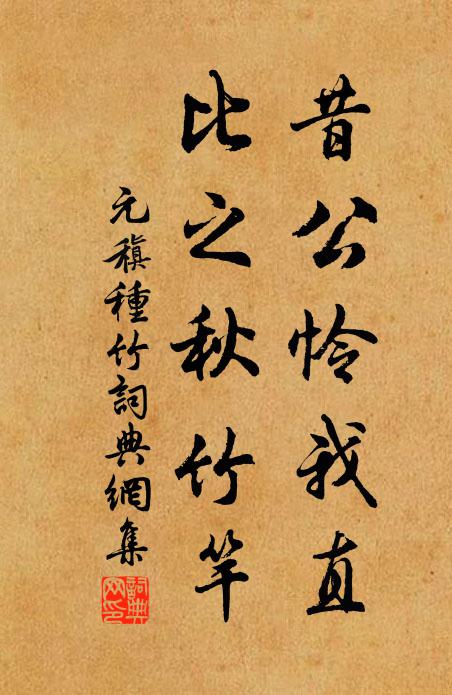 昔公怜我直
比之秋竹竿
元稹種竹詞典網集
詞典网印